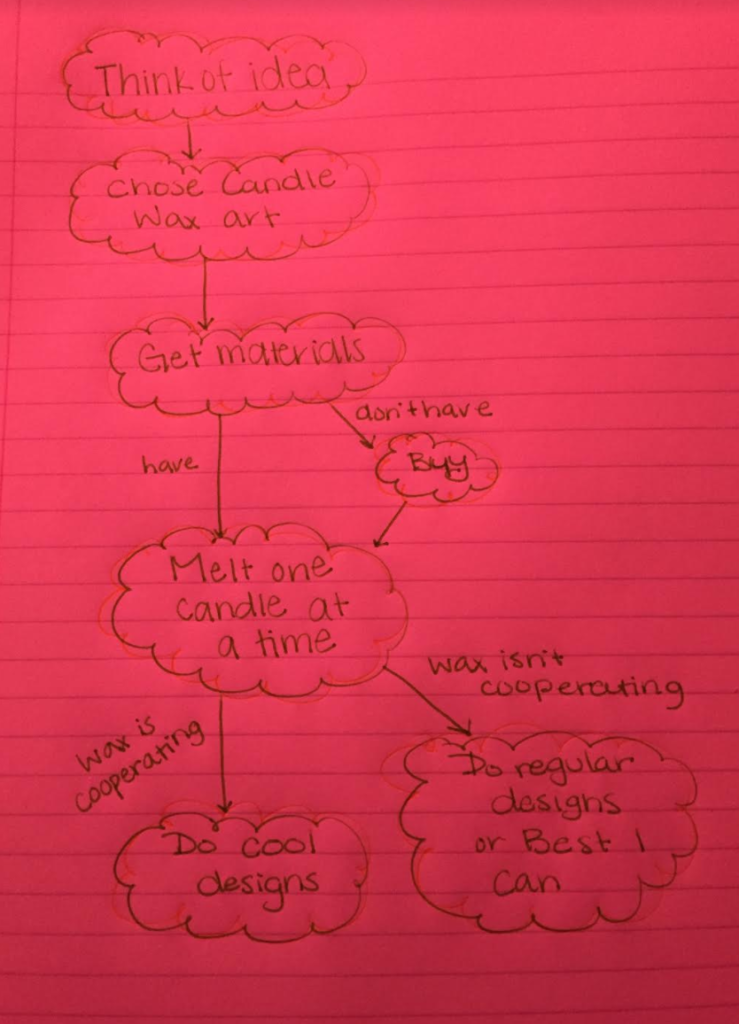 Think of idea
Chose Candle
Wax art
Get materials
don't have
have
Buy
Melt one
candle at
a time
wax isn't
cooperating
wax is
cooperating
Do regular
designs
or Best I
can
Do cool
designs